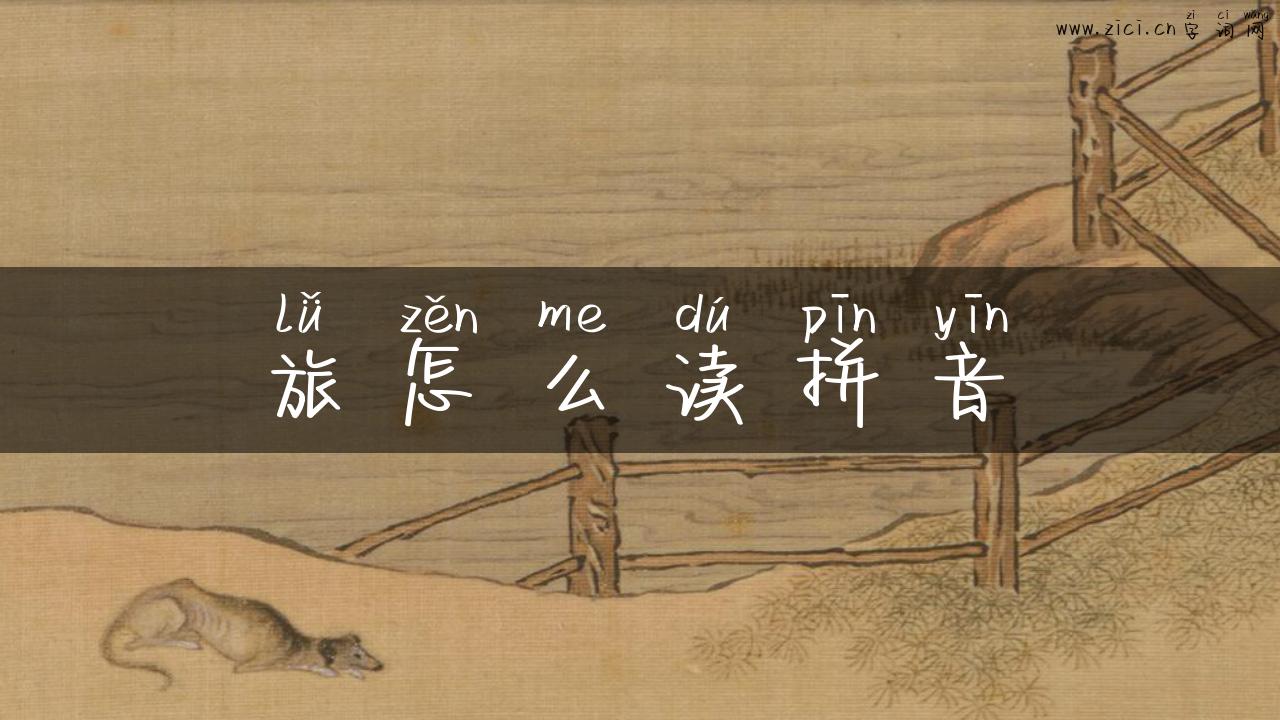 zi ci wang
www.zici.cn 字词网
lǚ zěn me dú pīn yīn
旅怎么读拼音